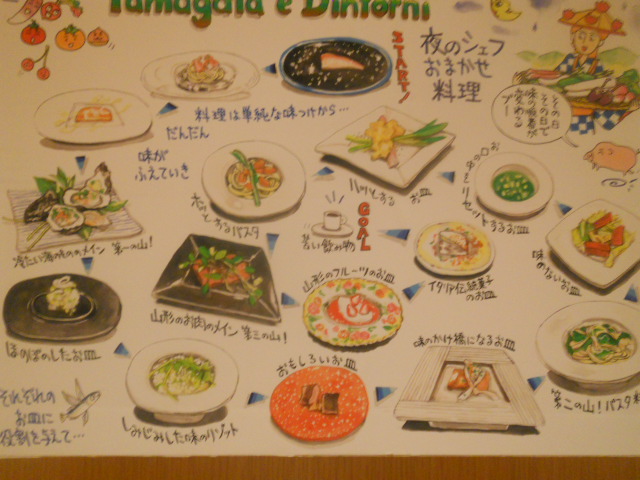 Yamagata e Dintorni
START!
夜のシェフ
おまかせ
料理
その日
その日で
味の順番が
変わる
ブー
料理は単純な味つけから…
だんだん
味が
ふえていき
冷たい海のもののメイン 第一の山!
ホッとするパスタ
ハッとする お皿
リセットするお皿
味のないお皿
GOAL
苦い飲み物
山形のお肉のメイン 第三の山!
山形のフルーツのお皿
イタリア伝統菓子
のお皿
ほのぼのしたお皿
しみじみした味のリゾット
おもしろいお皿
味のかけ橋になるお皿
第二の山!パスタ料
それぞれの
お皿に
役割を与えて…